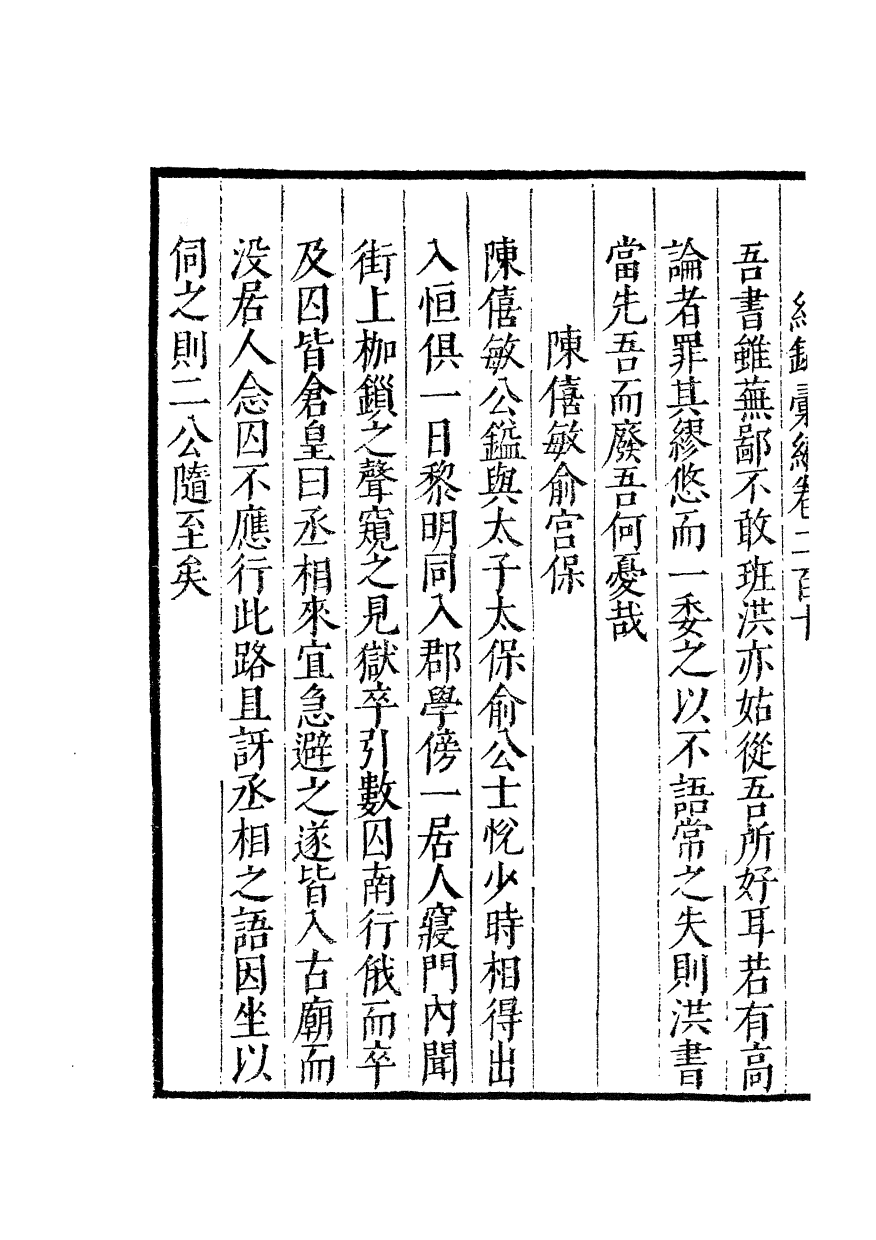 吾書雖蕪鄙不敢班洪亦姑從吾所好耳若有高
論者罪其繆悠而一委之以不語常之失則洪書
當先吾而廢吾何憂哉
陳僖敏俞宮保
陳僖敏公鎰與太子太保俞公士悅少時相得出
入恒俱一日黎明同入郡學傍一居人寢門內聞
街上枷鎖之聲窺之見獄卒引數囚南行俄而卒
及囚皆倉皇曰丞相來宜急避之遂皆入古廟而
没居人念囚不應行此路且訝丞相之語因坐以
伺之則二公隨至矣